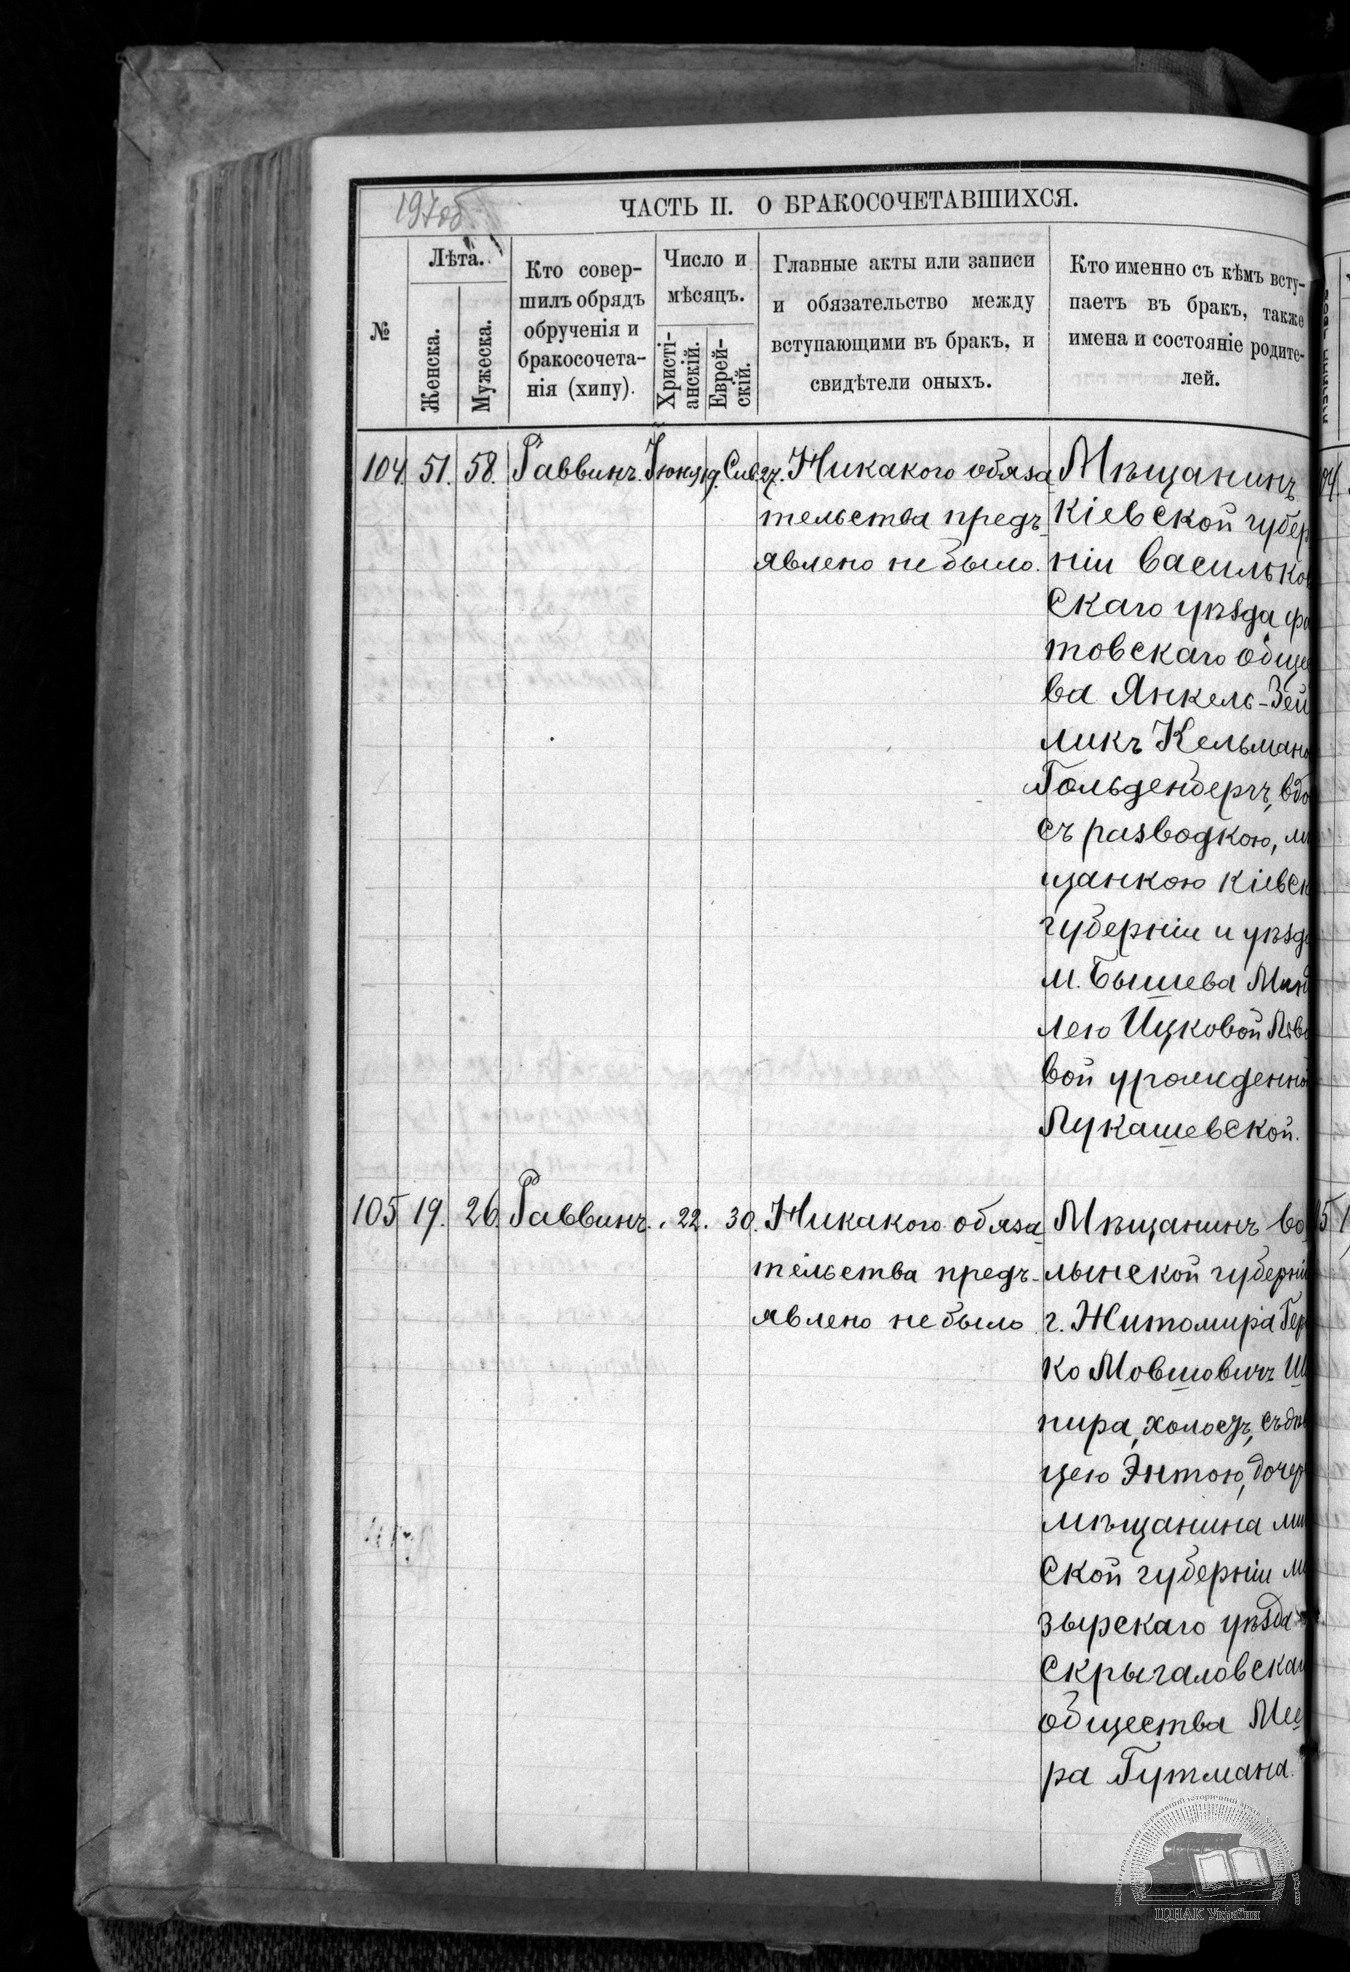 197об.
ЧАСТЬ II. О БРАКОСОЧЕТАВШИХСЯ.
№
Лѣта.
Женска.
Мужеска.
Кто совер-
шилъ обрядъ
обрученія и
бракосочета-
нія (хипу).
Число и
мѣсяцъ.
Христі-
анскій.
Еврей-
скій.
Главные акты или записи
и обязательство между
вступающими въ бракъ, и
свидѣтели оныхъ.
Кто именно съ кѣмъ всту-
паетъ въ бракъ, также
имена и состояніе родите-
лей.
104. 51. 58. Раввинъ. Іюня 19. Сив. 27. Никакого обяза
тельства предъ-
явлено не было.
Мѣщанинъ
Кіевской губер
ніи Васильков
скаго уѣзда
товскаго общес
ва Янкель-Зей
ликъ Кельмано
Гольденбергъ, вдо
съ разводкою, мѣ
щанкою Кіевск
губерніи и уѣзда
м. Бышева Минд
лею Ицковой
вой урожденной
Лукашевской.
105 19. 26. Раввинъ. " 22. 30. Никакого обяза
тельства предъ-
явлено не было
Мѣщанинъ Во
лынской губерніи
г. Житомира Гер
ко Мовшовичъ Ша
пира, холосъ, съ дѣви
цею Энтою, дочер
мѣщанина мин
ской губерніи мо
зырскаго уѣзда
Скрыгаловскаго
общества Мее
ра Гутмана.
ЦДІАК України